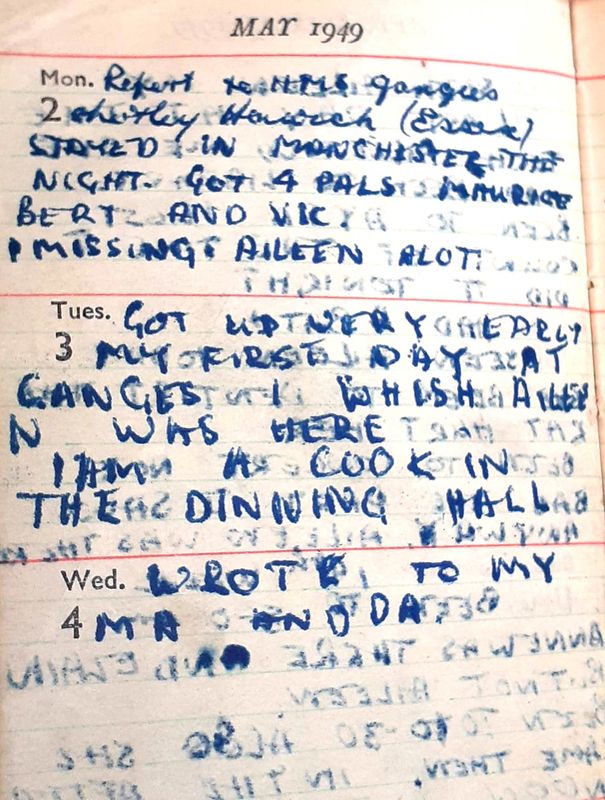 MAY 1949
Mon. Report to HMS Ganges
2 Shotley Harwich (Essex)
STAYED IN MANCHESTER THE
NIGHT. GOT 4 PALS MAURICE
BERT AND VIC.
I MISSING AILEEN ALOT
Tues. GOT UP VERY EARLY
3 MY FIRST DAY AT
GANGES I WHISH AILEE
N WAS HERE
I AM A COOK IN
THE DINNING HALL
Wed. WROTE TO MY
4 MA AND DA.